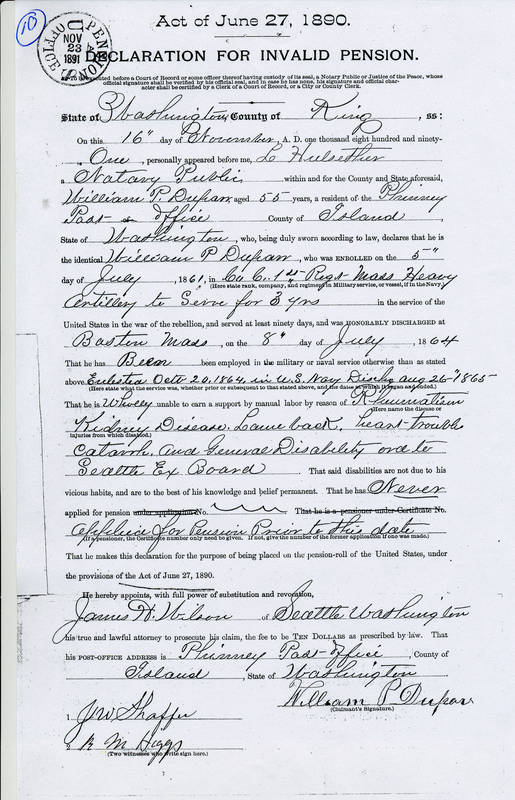 10
PENSION OFFICE
U
NOV
23
1891
Act of June 27, 1890.
DECLARATION FOR INVALID PENSION.
executed before a Court of Record or some officer thereof having custody of its seal, a Notary Public or Justice of the Peace, whose
official signature shall be verified by his official seal, and in case he has none, his signature and official char-
acter shall be certified by a Clerk of a Court of Record, or a City or County Clerk.
State of Washington, County of King, ss:
On this 16" day of November, A. D. one thousand eight hundred and ninety-
One, personally appeared before me, L Hulsether
a Notary Public within and for the County and State aforesaid,
William P. Dupan, aged 55 years, a resident of the Phinney
Post Office County of Island,
State of Washington, who, being duly sworn according to law, declares that he is
the identical William P Dupan, who was ENROLLED on the 5"
day of July, 1861, in Co C. 1st Regt Mass Heavy
(Here state rank, company, and regiment in Military service, or vessel, if in the Navy.)
Artillery to Serve for 3 yrs in the service of the
United States in the war of the rebellion, and served at least ninety days, and was HONORABLY DISCHARGED at
Boston Mass, on the 8" day of July, 1864
That he has Been been employed in the military or naval service otherwise than as stated
above Enlested Octr 20, 1864, in U.S. Navy Dischg Aug 26" 1865
(Here state what the service was, whether prior or subsequent to that stated above, and the dates at which it began and ended.)
That he is Wholly unable to earn a support by manual labor by reason of Rhumatism
(Here name the disease or
Kidney Disease. Lame back, heart trouble
injuries from which disabled.)
Catarrh. and General Disability
Seattle Ex Board That said disabilities are not due to his
vicious habits, and are to the best of his knowledge and belief permanent. That he has Never
applied for pension under application No. That he is a pensioner under Certificate No.
applied for Pension Prior to this date
(If a pensioner, the Certificate number only need be given. If not, give the number of the former application if one was made.)
That he makes this declaration for the purpose of being placed on the pension-roll of the United States, under
the provisions of the Act of June 27, 1890.
He hereby appoints, with full power of substitution and revocation,
James H. Wilson of Seattle Washington
his true and lawful attorney to prosecute his claim, the fee to be TEN DOLLARS as prescribed by law. That
his POST-OFFICE ADDRESS is Phinney Post-office, County of
Island, State of Washington
William P Dupan
(Claimant's Signature.)
1 J W Shaffer
2 R M Higgs
(Two witnesses who write sign here.)